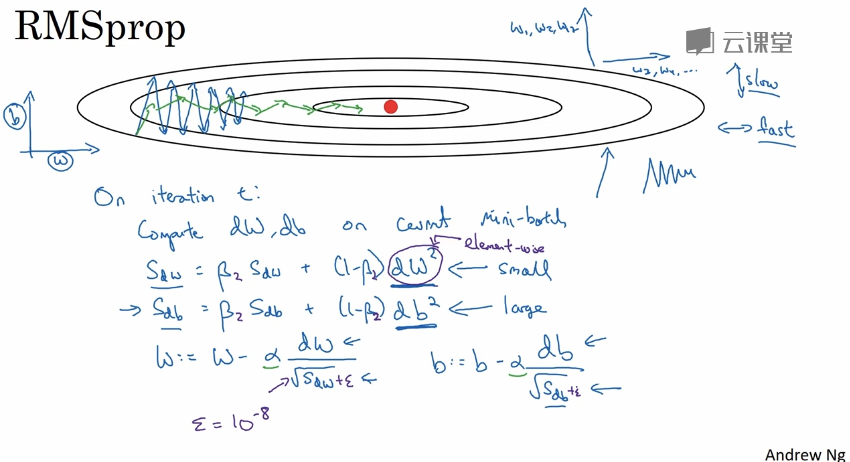 RMSprop
w₁, w₂, w₂
云课堂
w₃, w₄, ...
slow
fast
b
w
On iteration t:
Compute dW, db on current mini-batch
element-wise
S_dw = β₂ S_dw + (1-β₂) dW² ← small
→ S_db = β₂ S_db + (1-β₂) db² ← large
W := W - α dW / √S_dw + ε ←
b := b - α db / √S_db + ε ←
ε = 10⁻⁸
Andrew Ng